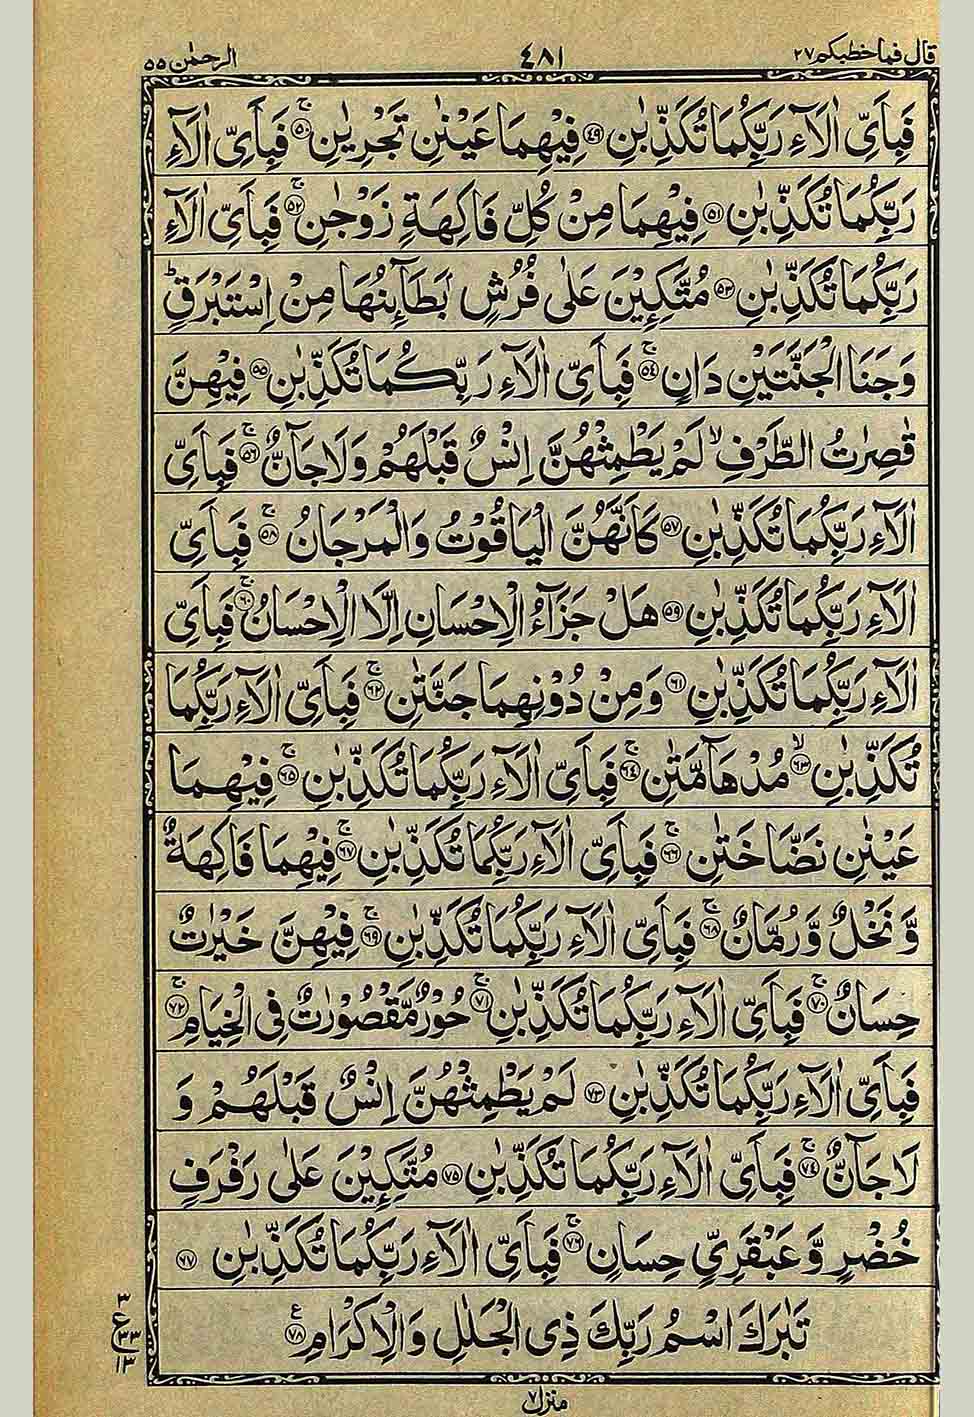 قال فما خطبكم ٢٧ ٤٨١ الرحمٰن ٥٥
فَبِاَىِّ اٰلَآءِ رَبِّكُمَا تُكَذِّبٰنِ ۝٤٩ فِيْهِمَا عَيْنٰنِ تَجْرِيٰنِ ۝٥٠ۚ فَبِاَىِّ اٰلَآءِ
رَبِّكُمَا تُكَذِّبٰنِ ۝٥١ فِيْهِمَا مِنْ كُلِّ فَاكِهَةٍ زَوْجٰنِ ۝٥٢ۚ فَبِاَىِّ اٰلَآءِ
رَبِّكُمَا تُكَذِّبٰنِ ۝٥٣ مُتَّكِـِٕيْنَ عَلٰى فُرُشٍۭ بَطَآئِنُهَا مِنْ اِسْتَبْرَقٍ ؕ
وَجَنَا الْجَنَّتَيْنِ دَانٍ ۝٥٤ۚ فَبِاَىِّ اٰلَآءِ رَبِّكُمَا تُكَذِّبٰنِ ۝٥٥ فِيْهِنَّ
قٰصِرٰتُ الطَّرْفِ ۙ لَمْ يَطْمِثْهُنَّ اِنْسٌ قَبْلَهُمْ وَلَا جَآنٌّ ۝٥٦ۚ فَبِاَىِّ
اٰلَآءِ رَبِّكُمَا تُكَذِّبٰنِ ۝٥٧ كَاَنَّهُنَّ الْيَاقُوْتُ وَالْمَرْجَانُ ۝٥٨ۚ فَبِاَىِّ
اٰلَآءِ رَبِّكُمَا تُكَذِّبٰنِ ۝٥٩ هَلْ جَزَآءُ الْاِحْسَانِ اِلَّا الْاِحْسَانُ ۝٦٠ۚ فَبِاَىِّ
اٰلَآءِ رَبِّكُمَا تُكَذِّبٰنِ ۝٦١ وَمِنْ دُوْنِهِمَا جَنَّتٰنِ ۝٦٢ۚ فَبِاَىِّ اٰلَآءِ رَبِّكُمَا
تُكَذِّبٰنِ ۝٦٣ۙ مُدْهَآمَّتٰنِ ۝٦٤ۚ فَبِاَىِّ اٰلَآءِ رَبِّكُمَا تُكَذِّبٰنِ ۝٦٥ۚ فِيْهِمَا
عَيْنٰنِ نَضَّاخَتٰنِ ۝٦٦ۚ فَبِاَىِّ اٰلَآءِ رَبِّكُمَا تُكَذِّبٰنِ ۝٦٧ۚ فِيْهِمَا فَاكِهَةٌ
وَّنَخْلٌ وَّرُمَّانٌ ۝٦٨ۚ فَبِاَىِّ اٰلَآءِ رَبِّكُمَا تُكَذِّبٰنِ ۝٦٩ۚ فِيْهِنَّ خَيْرٰتٌ
حِسَانٌ ۝٧٠ۚ فَبِاَىِّ اٰلَآءِ رَبِّكُمَا تُكَذِّبٰنِ ۝٧١ۚ حُوْرٌ مَّقْصُوْرٰتٌ فِى الْخِيَامِ ۝٧٢ۚ
فَبِاَىِّ اٰلَآءِ رَبِّكُمَا تُكَذِّبٰنِ ۝٧٣ لَمْ يَطْمِثْهُنَّ اِنْسٌ قَبْلَهُمْ وَ
لَا جَآنٌّ ۝٧٤ۚ فَبِاَىِّ اٰلَآءِ رَبِّكُمَا تُكَذِّبٰنِ ۝٧٥ مُتَّكِـِٕيْنَ عَلٰى رَفْرَفٍ
خُضْرٍ وَّعَبْقَرِىٍّ حِسَانٍ ۝٧٦ۚ فَبِاَىِّ اٰلَآءِ رَبِّكُمَا تُكَذِّبٰنِ ۝٧٧
تَبٰرَكَ اسْمُ رَبِّكَ ذِى الْجَلٰلِ وَالْاِكْرَامِ ۝٧٨ۧ
٣
ع ٣٣
١٣
منزل ٧